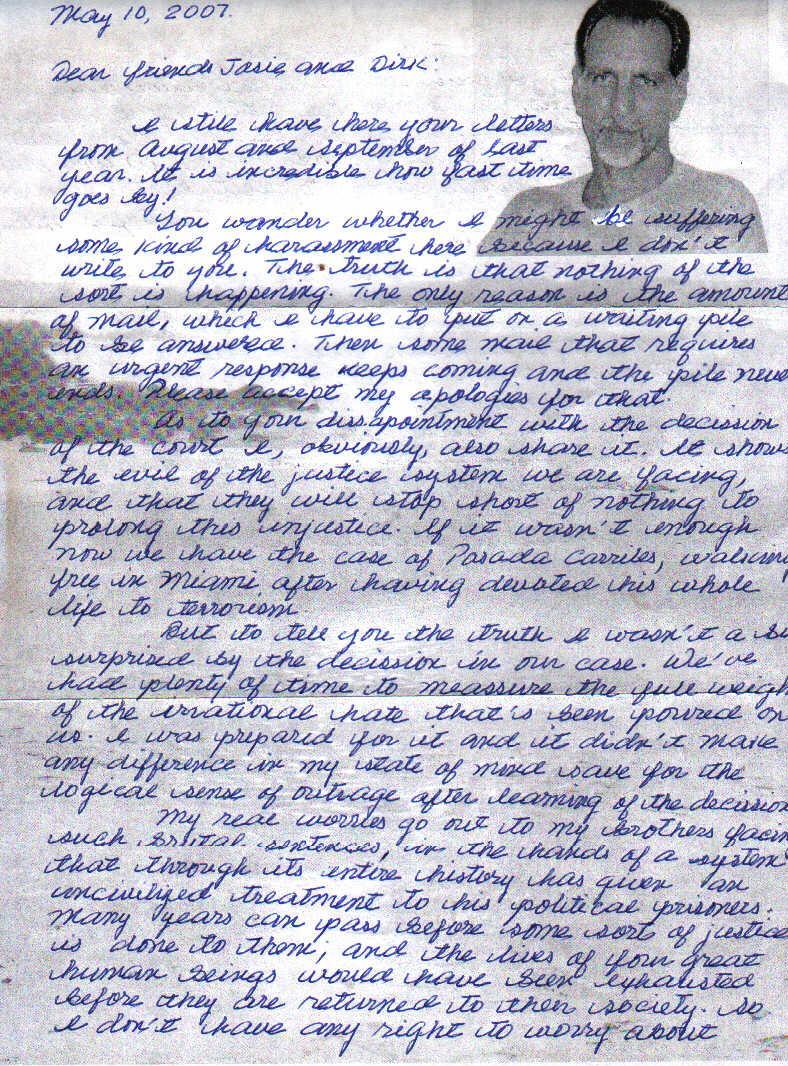 May 10, 2007.
Dear friends Josie and Dirk:
I still have here your letters
from August and September of last
year. It is incredible how fast time
goes by!
You wonder whether I might be suffering
some kind of harassment here because I don't
write to you. The truth is that nothing of the
sort is happening. The only reason is the amount
of mail, which I have to put on a waiting pile
to be answered. Then some mail that requires
an urgent response keeps coming and the pile neve
ends. Please accept my apologies for that.
As to your dissapointment with the decission
of the court I, obviously, also share it. It shows
the evil of the justice system we are facing,
and that they will stop short of nothing to
prolong this injustice. If it wasn't enough
now we have the case of Posada Carriles, walking
free in Miami after having devoted his whole
life to terrorism
But to tell you the truth I wasn't a
surprised by the decission in our case. We've
had plenty of time to meassure the full weigh
of the irrational hate that is been poured on
us. I was prepared for it and it didn't make
any difference in my state of mind save for the
logical sense of outrage after learning of the decission
My real worries go out to my brothers facin
such brutal sentences, in the hands of a system
that through its entire history has given an
uncivilized treatment to his political prisoners.
Many years can pass before some sort of justice
is done to them, and the lives of four great
human beings would have been exhausted
before they are returned to their society. So
I don't have any right to worry about